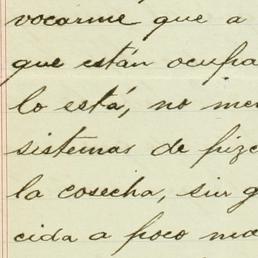 vocarme que a
que están ocupa
lo está, no me
sistemas de pizc
la cosecha, sin g
cida a poco ma